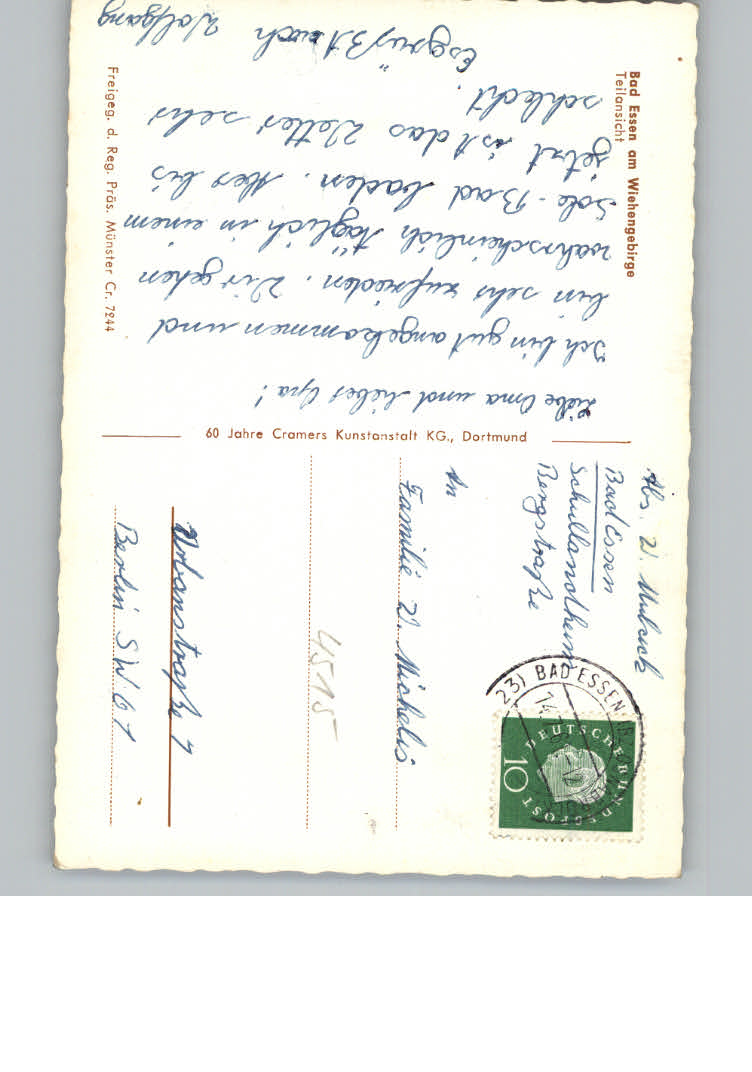 Bad Essen am Wiehengebirge
Teilansicht
Liebe Oma und lieber Opa!
Ich bin gut angekommen und
bin sehr zufrieden. Wir gehen
wahrscheinlich täglich in einem
Sole-Bad baden. Aber bis
jetzt ist das Wetter sehr
schlecht.
Es grüßt euch Wolfgang
Freigeg. d. Reg. Präs. Münster Cr. 7244
60 Jahre Cramers Kunstanstalt KG., Dortmund
Abs. W.
Bad Essen
Schullandheim
Bergstraße
An
Familie W. Michelis
4515
Urbanstraße 7
Berlin SW 61
(23) BAD ESSEN
DEUTSCHE BUNDESPOST
10